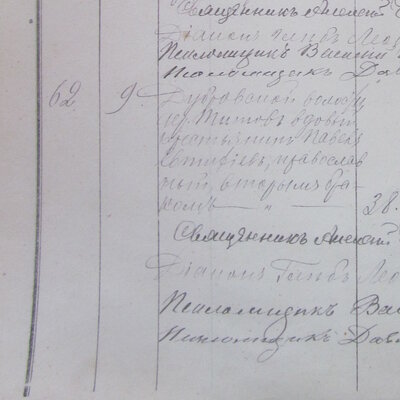 Священникъ Алексей
Діаконъ Глѣбъ Лео
Псаломщикъ Василій
Псаломщикъ Дав
62 9. Дубровской волости
вдовый
крестьянинъ Павелъ
Евтифіевъ, православ
ный, вторымъ бра
комъ — „ — 38.
Священникъ Алексей
Діаконъ Глѣбъ Лео
Псаломщикъ Вас
Псаломщикъ Дав